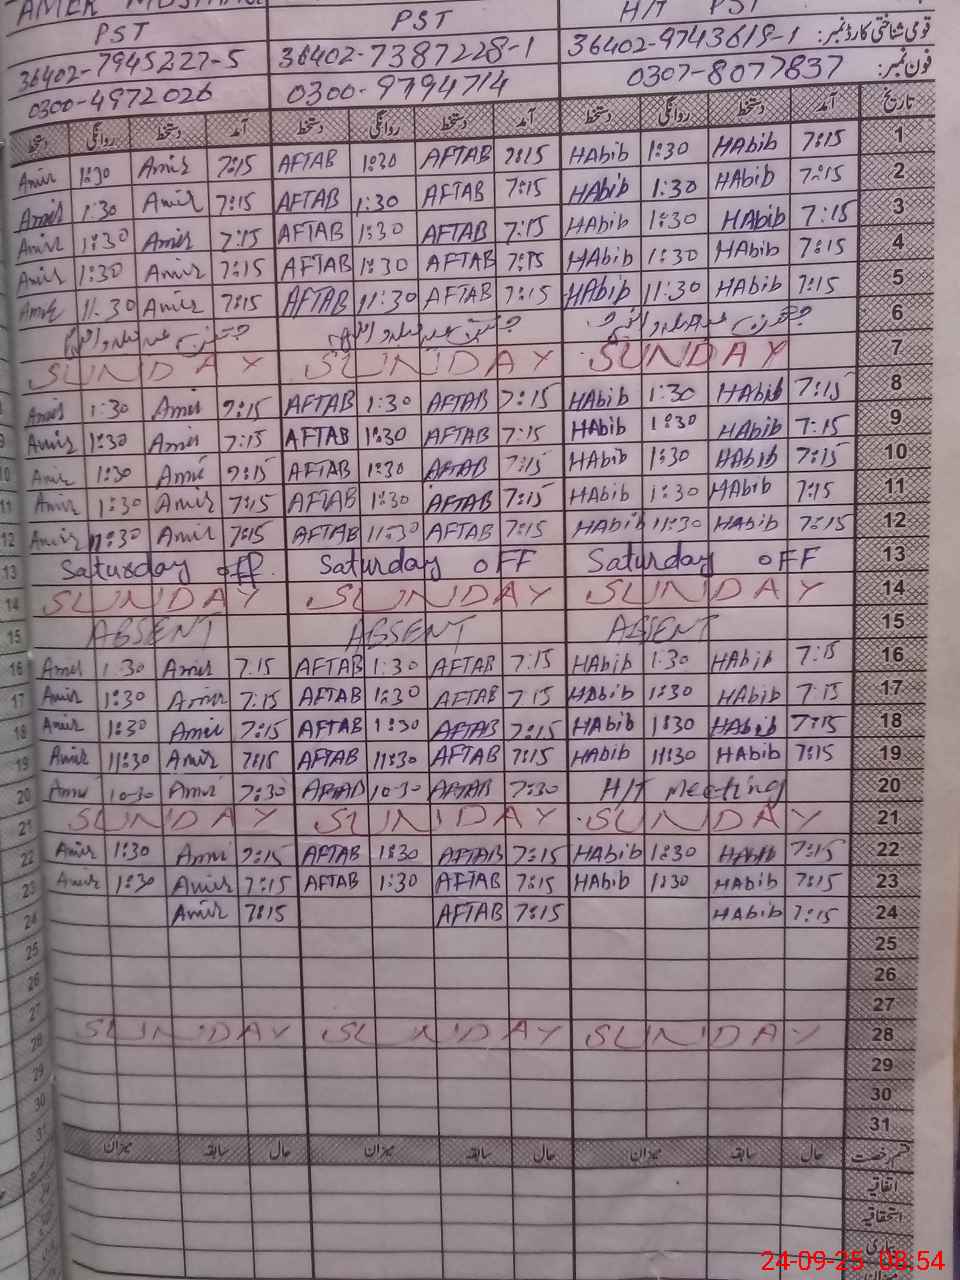 AMER
PST PST H/T PST
36402-7945227-5 36402-7387228-1 36402-9743619-1 قومی شناختی کارڈ نمبر:
0300-4972026 0300-9794714 0307-8077837 فون نمبر:
دستخط روانگی دستخط آمد دستخط روانگی دستخط آمد دستخط روانگی دستخط آمد تاریخ
Amir 1:30 Amir 7:15 AFTAB 1:30 AFTAB 7:15 HAbib 1:30 HAbib 7:15 1
Amir 1:30 Amir 7:15 AFTAB 1:30 AFTAB 7:15 HAbib 1:30 HAbib 7:15 2
Amir 1:30 Amir 7:15 AFTAB 1:30 AFTAB 7:15 HAbib 1:30 HAbib 7:15 3
Amir 1:30 Amir 7:15 AFTAB 1:30 AFTAB 7:15 HAbib 1:30 HAbib 7:15 4
Amir 11:30 Amir 7:15 AFTAB 11:30 AFTAB 7:15 HAbib 11:30 HAbib 7:15 5
6
SUNDAY SUNDAY SUNDAY 7
Amir 1:30 Amir 7:15 AFTAB 1:30 AFTAB 7:15 HAbib 1:30 HAbib 7:15 8
Amir 1:30 Amir 7:15 AFTAB 1:30 AFTAB 7:15 HAbib 1:30 HAbib 7:15 9
10 Amir 1:30 Amir 7:15 AFTAB 1:30 AFTAB 7:15 HAbib 1:30 HAbib 7:15 10
11 Amir 1:30 Amir 7:15 AFTAB 1:30 AFTAB 7:15 HAbib 1:30 HAbib 7:15 11
12 Amir 11:30 Amir 7:15 AFTAB 11:30 AFTAB 7:15 HAbib 11:30 HAbib 7:15 12
13 Saturday off Saturday oFF Saturday oFF 13
14 SUNDAY SUNDAY SUNDAY 14
15 ABSENT ABSENT ABSENT 15
16 Amir 1:30 Amir 7:15 AFTAB 1:30 AFTAB 7:15 HAbib 1:30 HAbib 7:15 16
17 Amir 1:30 Amir 7:15 AFTAB 1:30 AFTAB 7:15 HAbib 1:30 HAbib 7:15 17
18 Amir 1:30 Amir 7:15 AFTAB 1:30 AFTAB 7:15 HAbib 1:30 HAbib 7:15 18
19 Amir 11:30 Amir 7:15 AFTAB 11:30 AFTAB 7:15 HAbib 11:30 HAbib 7:15 19
20 Amir 10:30 Amir 7:30 AFTAB 10:30 AFTAB 7:30 H/T Meeting 20
21 SUNDAY SUNDAY SUNDAY 21
22 Amir 1:30 Amir 7:15 AFTAB 1:30 AFTAB 7:15 HAbib 1:30 HAbib 7:15 22
23 Amir 1:30 Amir 7:15 AFTAB 1:30 AFTAB 7:15 HAbib 1:30 HAbib 7:15 23
24 Amir 7:15 AFTAB 7:15 HAbib 7:15 24
25 25
26 26
27 27
28 SUNDAY SUNDAY SUNDAY 28
29 29
30 30
31 31
میزان سابقہ حال میزان سابقہ حال میزان سابقہ حال قسم رخصت
اتفاقیہ
استحقاقیہ
بیماری
24-09-25 08:54